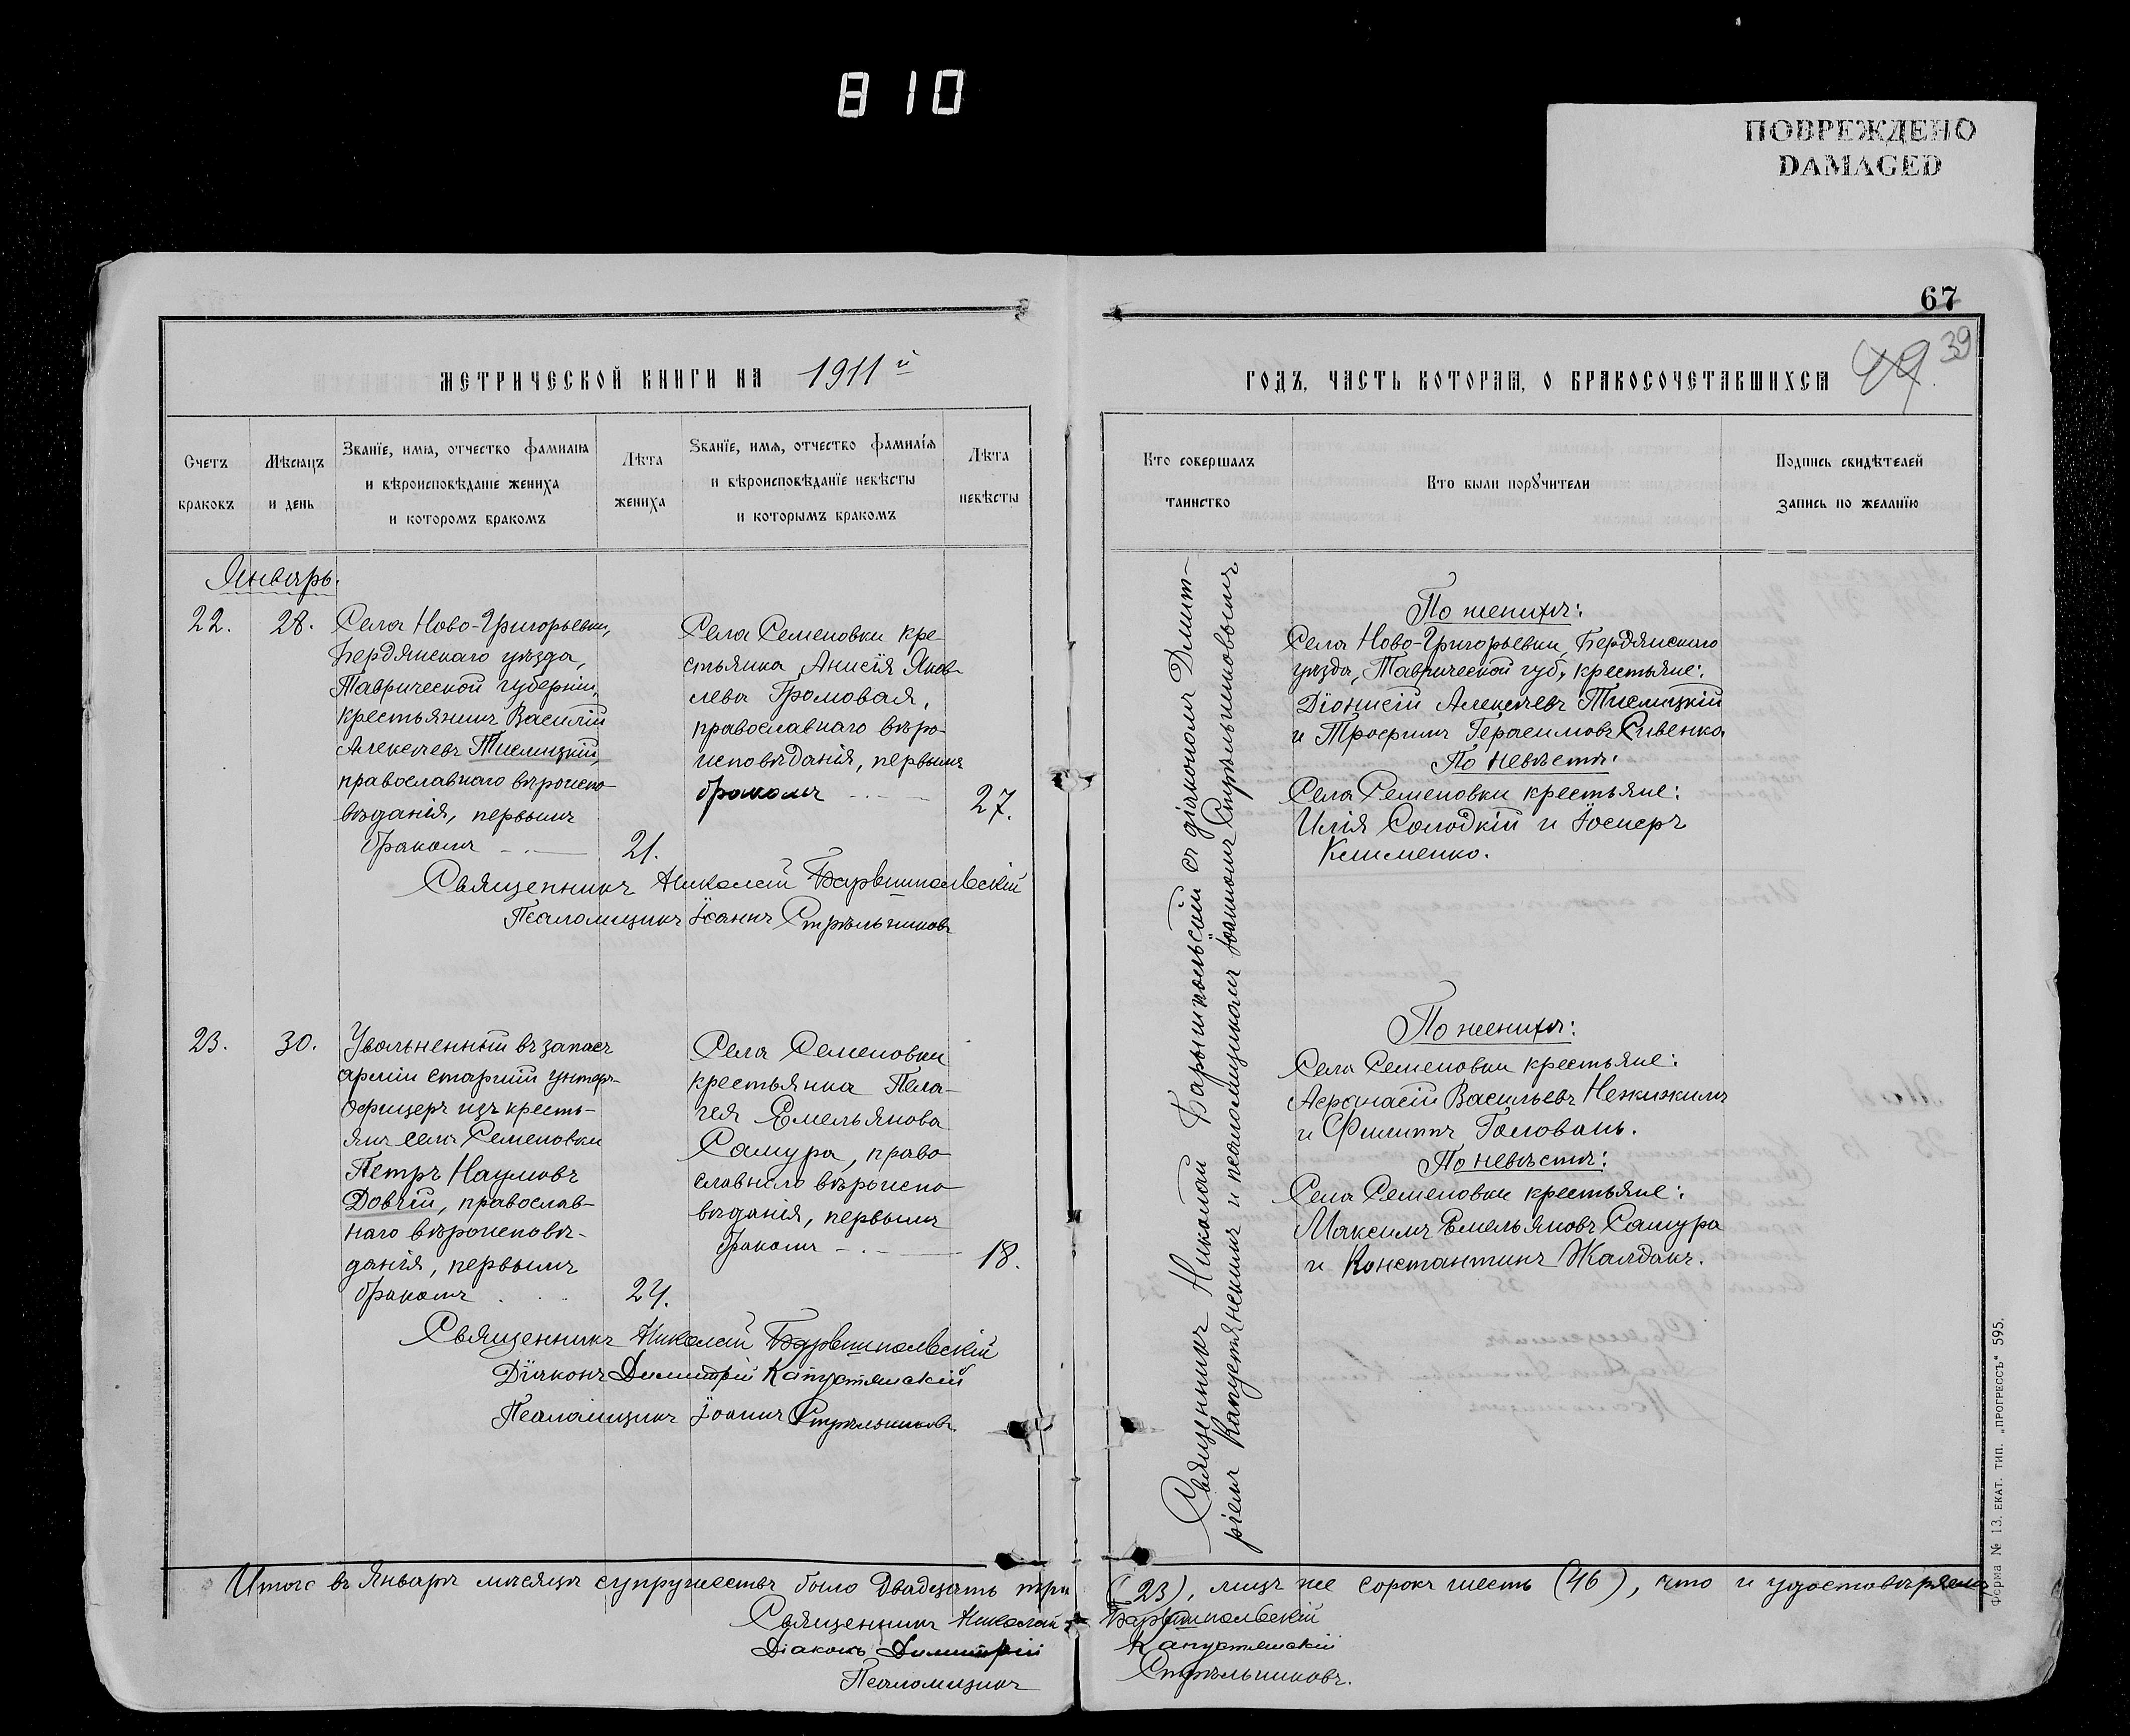 810
ПОВРЕЖДЕНО
DAMAGED
67
39
МЕТРИЧЕСКОЙ КНИГИ НА 1911й
ГОДЪ, ЧАСТЬ ВТОРАЯ, О БРАКОСОЧЕТАВШИХСЯ
Счетъ
браковъ
Мѣсяцъ
и день
Званіе, имя, отчество фамилія
и вѣроисповѣданіе жениха
и которомъ бракомъ
Лѣта
жениха
Званіе, имя, отчество фамилія
и вѣроисповѣданіе невѣсты
и которымъ бракомъ
Лѣта
невѣсты
Кто совершалъ
таинство
Кто были поручители
Подпись свидѣтелей
запись по желанію
Январь.
22.
28.
Села Ново-Григорьевки,
Бердянскаго уѣзда,
Таврической губерніи,
крестьянинъ Василій
Алексѣевъ Тислицкій,
православнаго вѣроиспо-
вѣданія, первымъ
бракомъ
21.
Села Семеновки кре-
стьянка Анисія Яков-
лева Громовая,
православнаго вѣро-
исповѣданія, первымъ
бракомъ
27.
Священникъ Николай Барышпольскій
Псаломщикъ Іоаннъ Стрѣльниковъ
23.
30.
Уволенный въ запасъ
арміи старшій унтеръ-
офицеръ изъ кресть-
янъ села Семеновки
Петръ Наумовъ
Довгій, православ-
наго вѣроисповѣ-
данія, первымъ
бракомъ
24.
Села Семеновки
крестьянка Пела-
гея Емельянова
Самура, право-
славнаго вѣроиспо-
вѣданія, первымъ
бракомъ
18.
Священникъ Николай Барышпольскій
Діаконъ Димитрій Капустянскій
Псаломщикъ Іоаннъ Стрѣльниковъ.
Священникъ Николай Барышпольскій съ діакономъ Димит-
ріемъ Капустянскимъ и псаломщикомъ Іоанномъ Стрѣльниковымъ
По женихѣ:
Села Ново-Григорьевки, Бердянскаго
уѣзда, Таврической губ. крестьяне:
Діонисій Алексѣевъ Тислицкій
и Трофимъ Герасимовъ Сивенко.
По невѣстѣ:
Села Семеновки крестьяне:
Илія Солодкій и Іосифъ
Клименко.
По женихѣ:
Села Семеновки крестьяне:
Афанасій Васильевъ Нежижимъ
и Филиппъ Головань.
По невѣстѣ:
Села Семеновки крестьяне:
Максимъ Емельяновъ Самура
и Константинъ Жалдакъ.
Итого въ Январѣ мѣсяцѣ супружествъ было двадцать три (23), лицъ же сорокъ шесть (46), что и удостовѣряемъ
Священникъ Николай Барышпольскій
Діаконъ Димитрій Капустянскій
Псаломщикъ Стрѣльниковъ.
Форма № 13. ЕКАТ. ТИП. „ПРОГРЕССЪ“ 595.